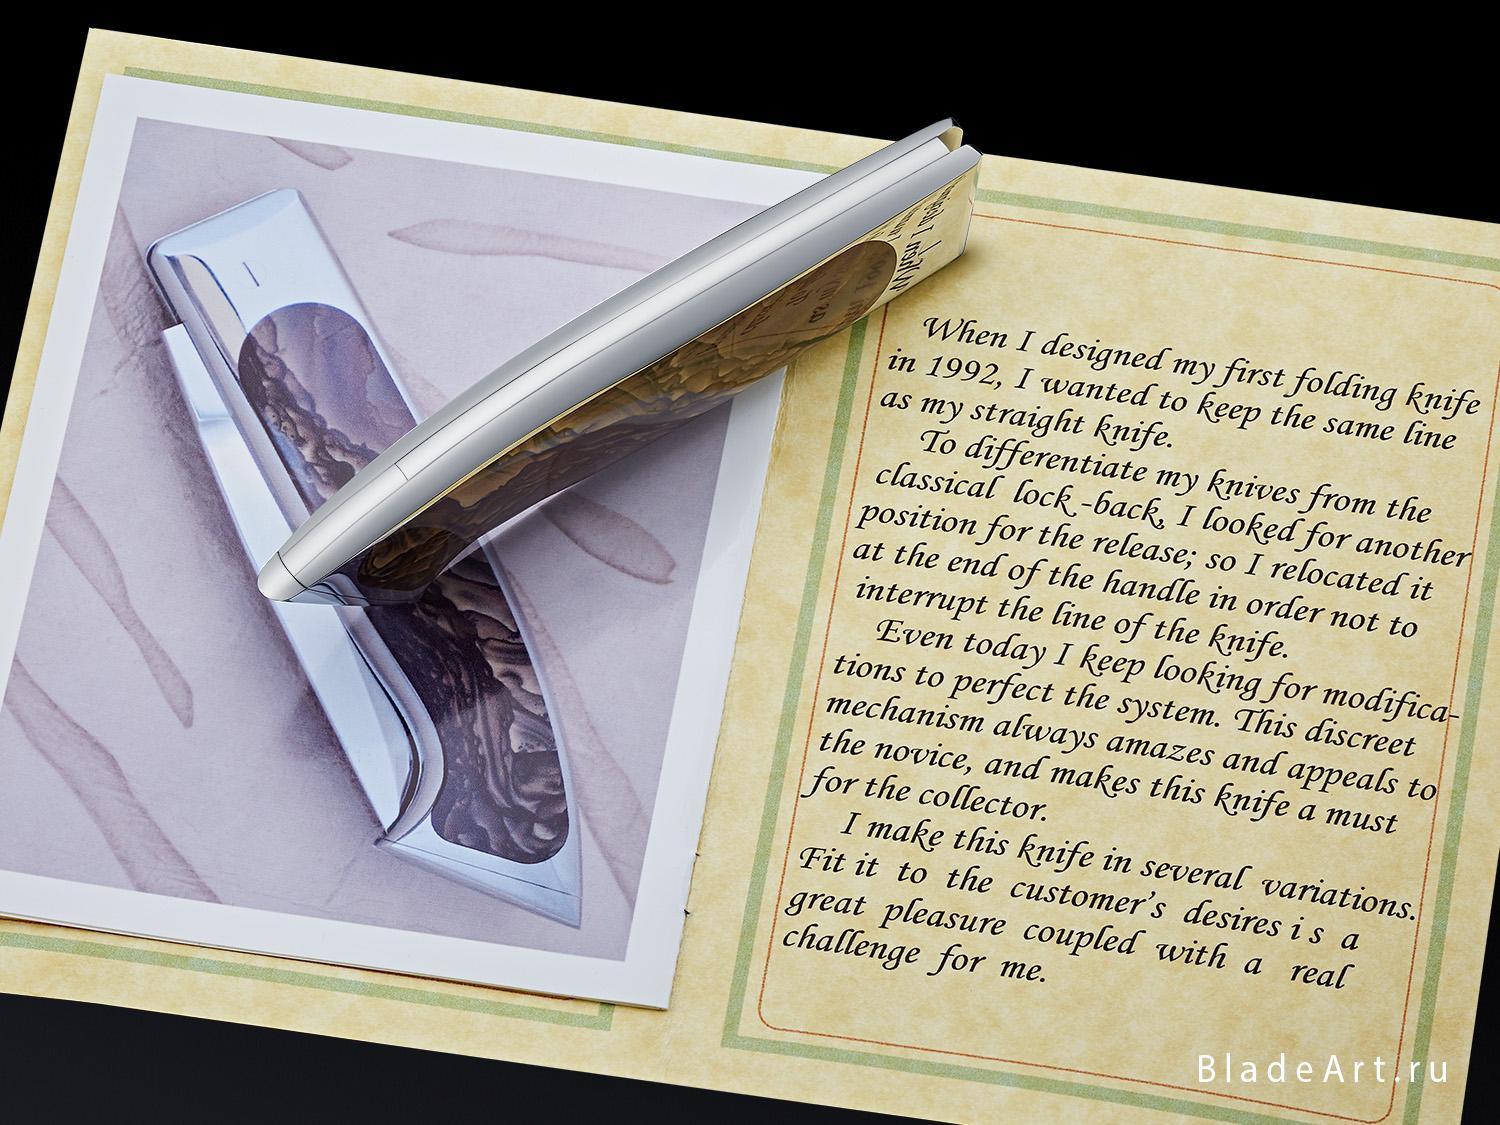 When I designed my first folding knife
in 1992, I wanted to keep the same line
as my straight knife.
To differentiate my knives from the
classical lock-back, I looked for another
position for the release; so I relocated it
at the end of the handle in order not to
interrupt the line of the knife.
Even today I keep looking for modifica-
tions to perfect the system. This discreet
mechanism always amazes and appeals to
the novice, and makes this knife a must
for the collector.
I make this knife in several variations.
Fit it to the customer's desires is a
great pleasure coupled with a real
challenge for me.
BladeArt.ru